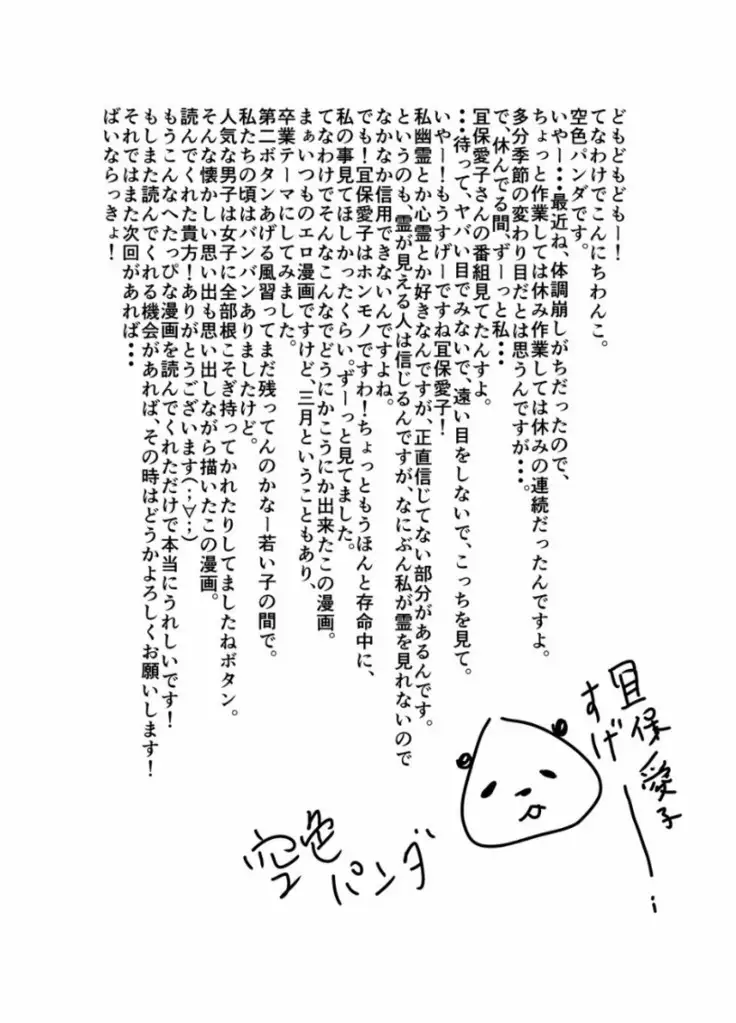 どもどもどもー！
てなわけでこんにちわんこ。
空色パンダです。
いやー・・・最近ね、体調崩しがちだったので、
ちょっと作業しては休み作業しては休みの連続だったんですよ。
多分季節の変わり目だとは思うんですが・・・。
で、休んでる間、ずーっと私・・・
冝保愛子さんの番組見てたんすよ。
・・・待って、ヤバい目でみないで、遠い目をしないで、こっちを見て。
いやー！もうすげーですね冝保愛子！
私幽霊とか心霊とか好きなんですが、正直信じてない部分があるんです。
というのも、霊が見える人は信じるんですが、なにぶん私が霊を見れないので
なかなか信用できないんですよね。
でも！冝保愛子はホンモノですわ！ちょっともうほんと存命中に、
私の事見てほしかったくらい。ずーっと見てました。
てなわけでそんなこんなでどうにかこうにか出来たこの漫画。
まぁいつものエロ漫画ですけど、三月ということもあり、
卒業テーマにしてみました。
第二ボタンあげる風習ってまだ残ってんのかなー若い子の間で。
私たちの頃はバンバンありましたけど。
人気な男子は女子に全部根こそぎ持ってかれたりしてましたねボタン。
そんな懐かしい思い出も思い出しながら描いたこの漫画。
読んでくれた貴方！ありがとうございます(；∀；)
もうこんなへたっぴな漫画を読んでくれただけで本当にうれしいです！
もしまた読んでくれる機会があれば、その時はどうかよろしくお願いします！
それではまた次回があれば・・・
ばいならっきょ！
冝保愛子
すげーー！
空色パンダ